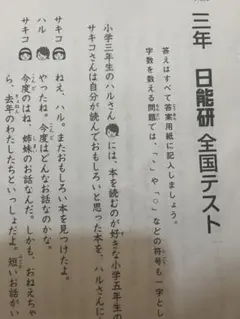 三年　日能研　全国テスト
答えはすべて答案用紙に記入しましょう。
字数を数える問題では、「、」や「。」などの符号も一字とし
小学三年生のハルさんには、本を読むのが好きな小学五年生の
サキコさんは自分が読んでおもしろいと思った本を、ハルさんに
サキコ　ねえ、ハル。またおもしろい本を見つけたよ。
ハル　やったね。今度はどんなお話なのかな。
サキコ　今度のはね、姉妹のお話なんだ。しかも、おねえちゃ
ら、去年のわたしたちといっしょだよ。短いお話がい